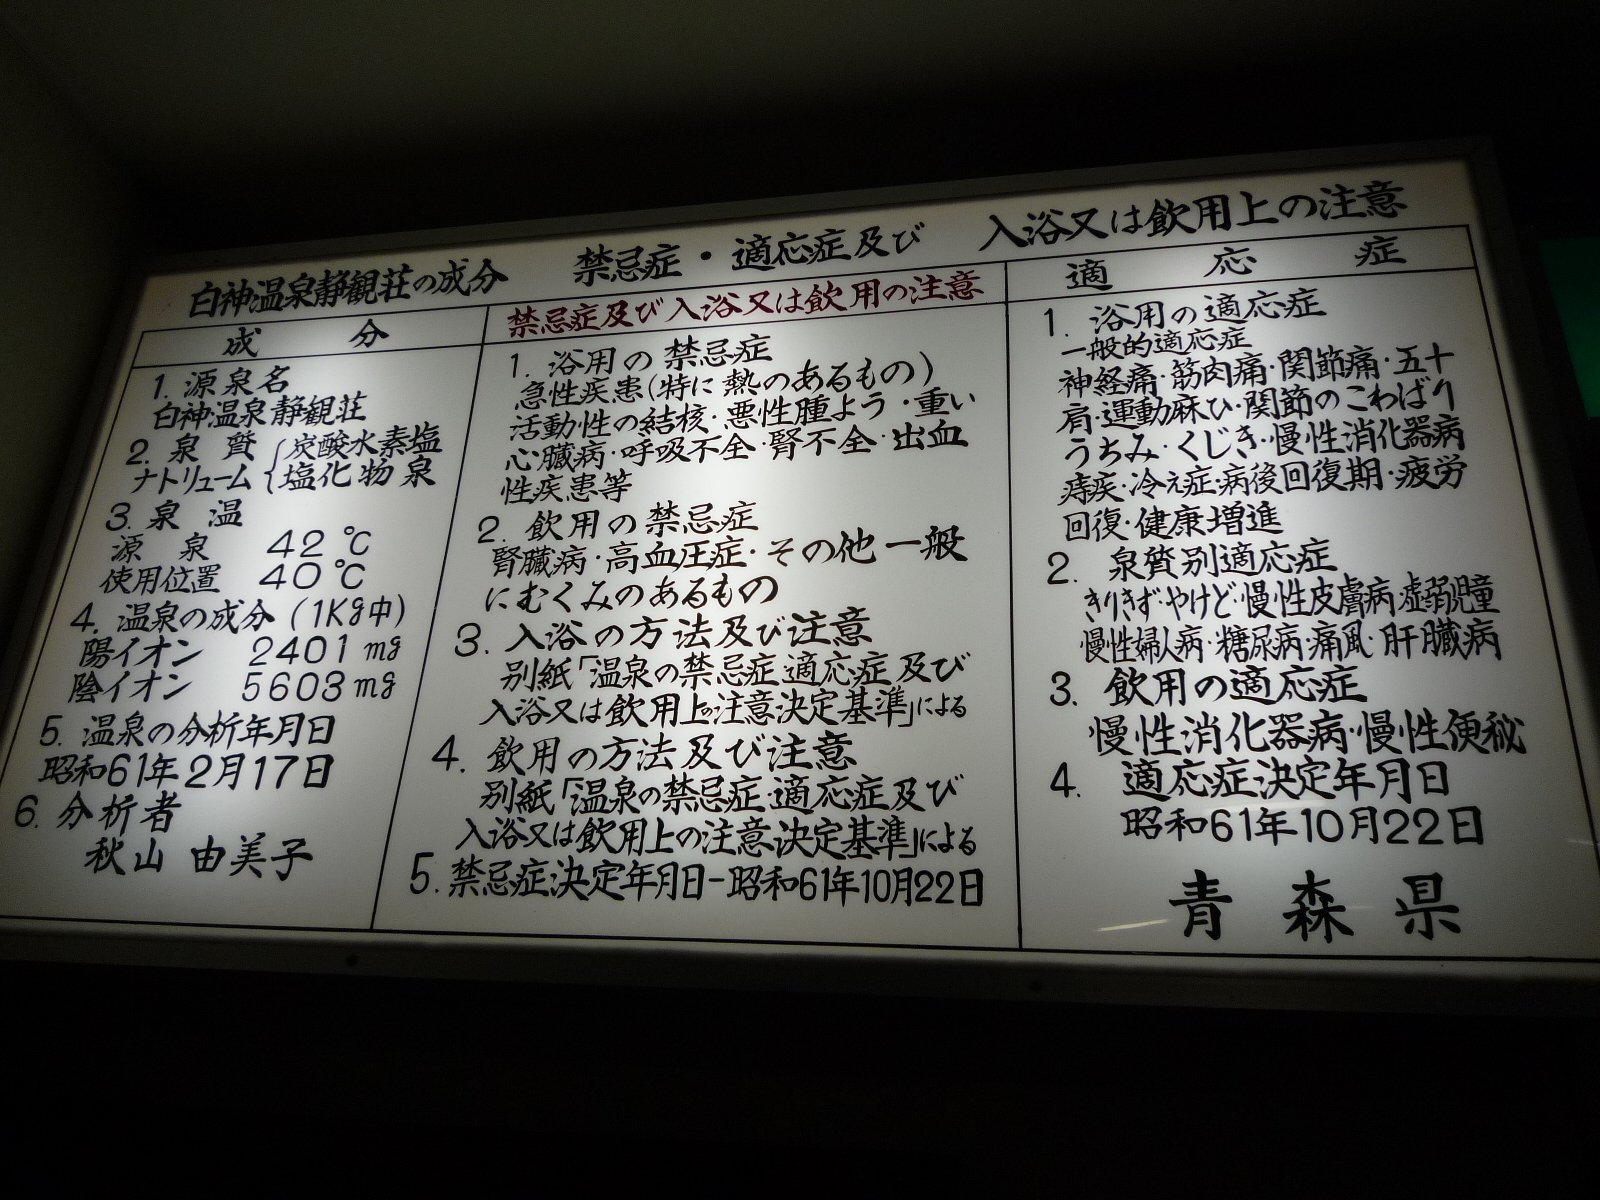 白神温泉静観荘の成分　禁忌症・適応症及び　入浴又は飲用上の注意
成　分
1. 源泉名
白神温泉静観荘
2. 泉質 炭酸水素塩
ナトリューム 塩化物泉
3. 泉温
源泉 42℃
使用位置 40℃
4. 温泉の成分(1Kg中)
陽イオン 2401mg
陰イオン 5603mg
5. 温泉の分析年月日
昭和61年2月17日
6. 分析者
秋山 由美子
禁忌症及び入浴又は飲用の注意
1. 浴用の禁忌症
急性疾患(特に熱のあるもの)
活動性の結核・悪性腫よう・重い
心臓病・呼吸不全・腎不全・出血
性疾患等
2. 飲用の禁忌症
腎臓病・高血圧症・その他一般
にむくみのあるもの
3. 入浴の方法及び注意
別紙「温泉の禁忌症適応症及び
入浴又は飲用上の注意決定基準」による
4. 飲用の方法及び注意
別紙「温泉の禁忌症・適応症及び
入浴又は飲用上の注意決定基準」による
5. 禁忌症決定年月日-昭和61年10月22日
適　応　症
1. 浴用の適応症
一般的適応症
神経痛・筋肉痛・関節痛・五十
肩・運動麻ひ・関節のこわばり
うちみ・くじき・慢性消化器病
痔疾・冷え症・病後回復期・疲労
回復・健康増進
2. 泉質別適応症
きりきず・やけど・慢性皮膚病・虚弱児童
慢性婦人病・糖尿病・痛風・肝臓病
3. 飲用の適応症
慢性消化器病・慢性便秘
4. 適応症決定年月日
昭和61年10月22日
青森県